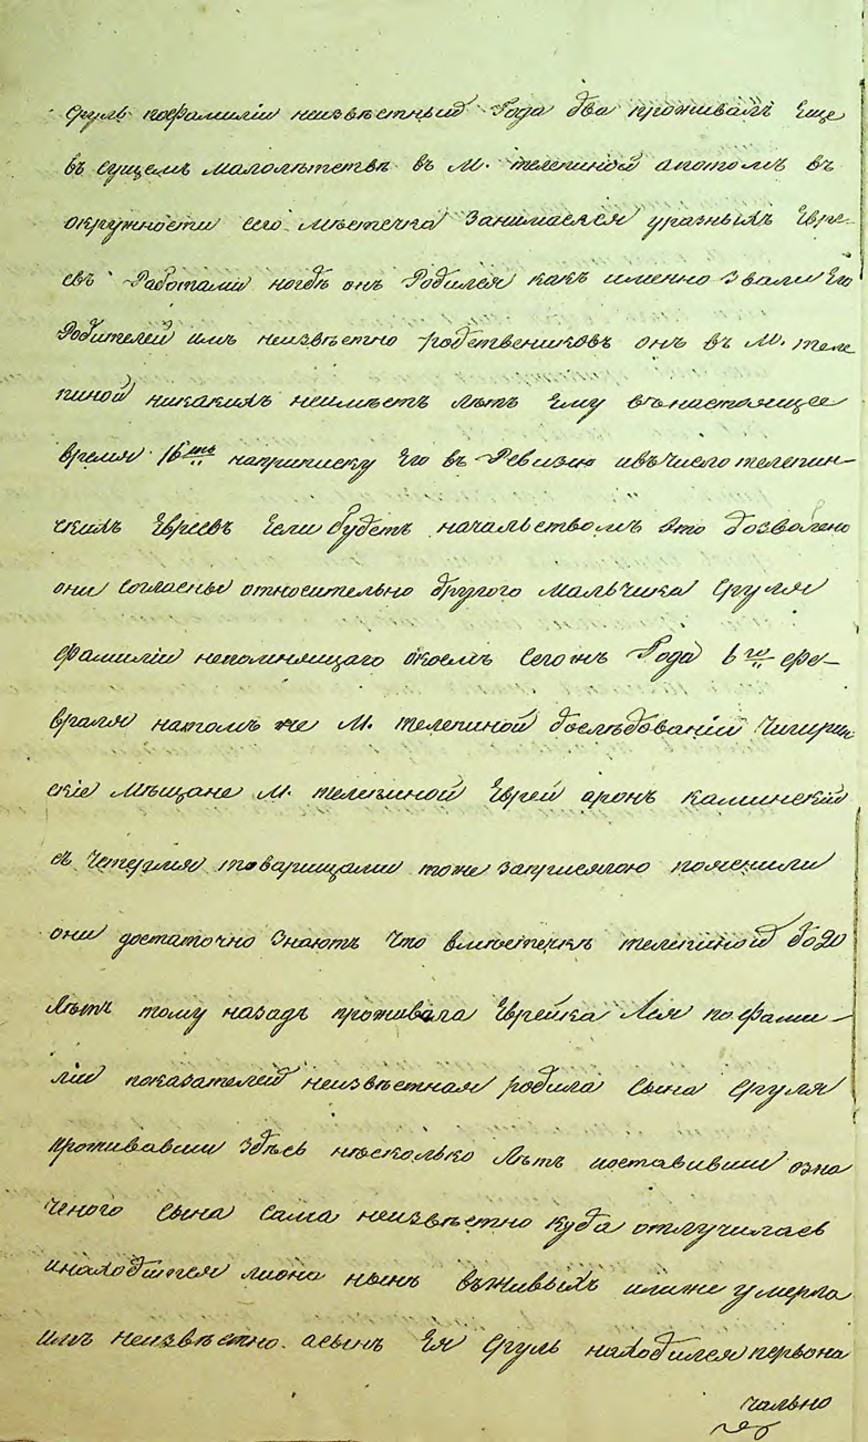 Сруль пофамиліи неизвѣстный Года два проживалъ Еще
въ сущемъ малолѣтствѣ въ М. телепиной апотомъ въ
окружности сего мѣстечка Занимаелся уразныхъ Евре-
евъ Работами ногдѣ онъ Родился какъ именно Звали Его
Родителей имъ неизвѣстно родствениковъ онъ въ М. теле
пиной никакихъ неимѣетъ лѣтъ Ему внастоящее
время 16ть наприписку Его въ Ревизію ивъчисло телепин-
скихъ Евреевъ Если будетъ начальствомъ Это дозволено
они Согласны относительно другого Мальчика Сруля
фамиліи непомнящаго окоемъ Сегожъ Года 6го фе-
враля натомъ же М. телепиной дослѣдованіи Чигирин
скіе Мѣщане М. телепиной Еврей аронъ каминскій
съ Четырмя товарищами тоже Заприсягою пояснили
они достаточно Знаютъ Что вмѣстечкѣ телепиной до 20
Лѣтъ тому назадъ проживала Еврейка Лея по фами-
ліи показателей неизвѣстная родила Сына Сруля
проживавши Здѣсь нѣсколько Лѣтъ иоставивши озна
ченого Сына Сама неизвѣстно куда отлучилась
инаходится лиона нынѣ въживыхъ илиже умерла
имъ неизвѣстно. асынъ Ея Сруль находился первона
чально